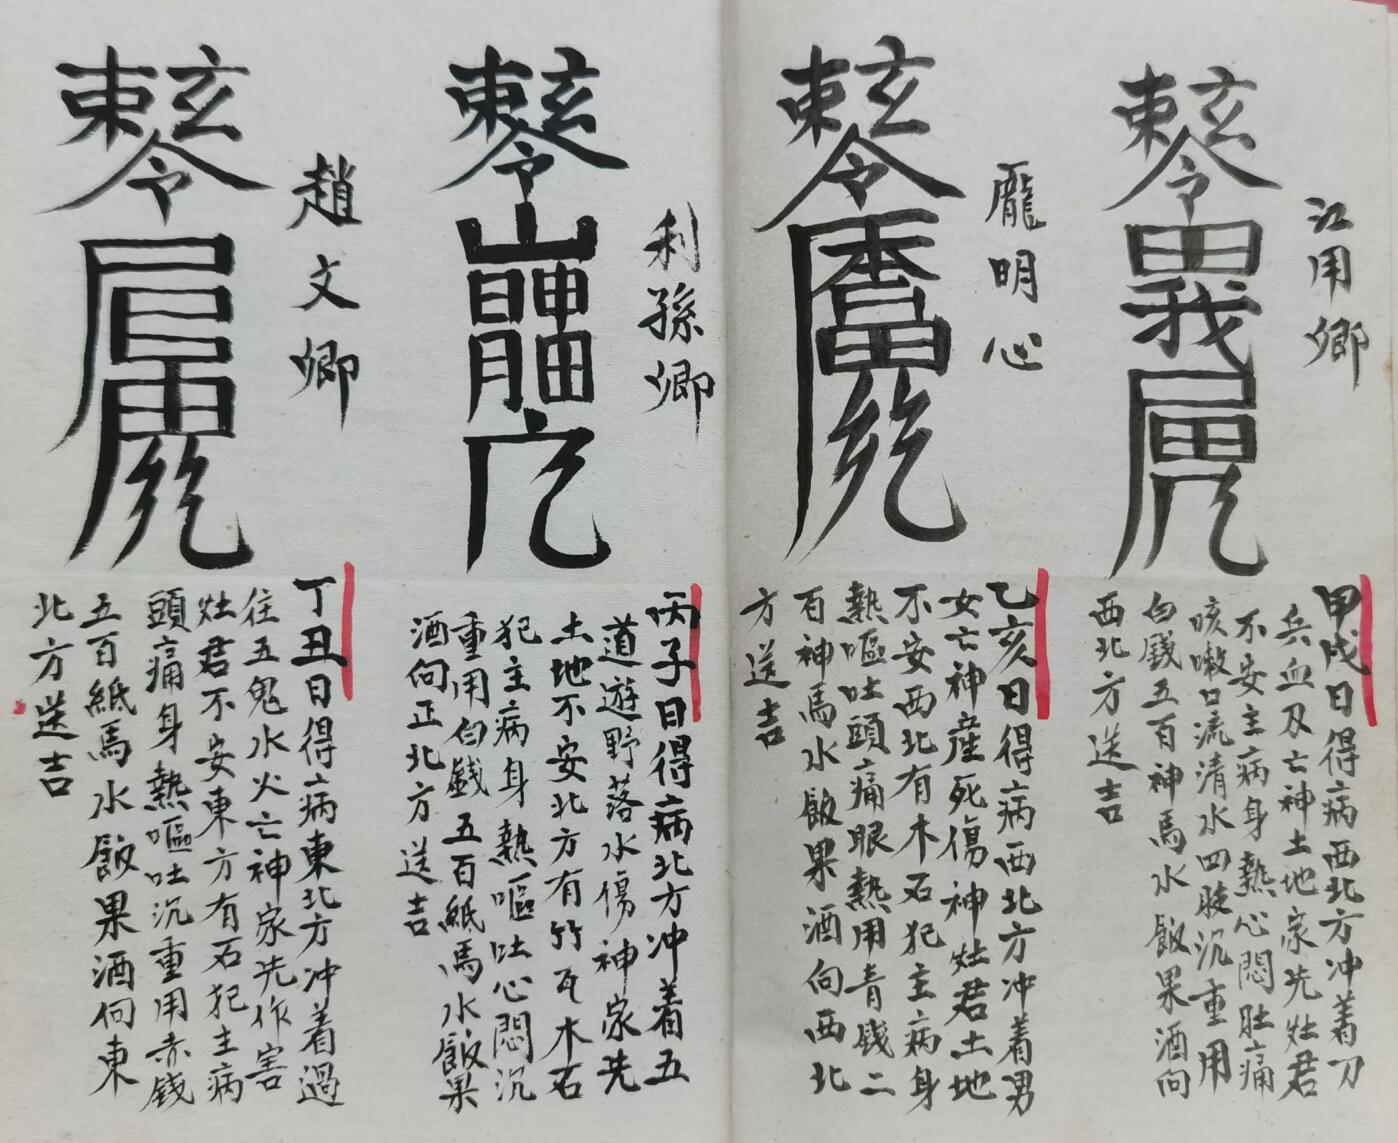 江用卿
甲戌日得病西北方冲着刀
兵血及亡神土地家先灶君
不安主病身熱心悶肚痛
咳嗽口流清水四肢沉重用
白錢五百神馬水飯果酒向
西北方送吉
龐明心
乙亥日得病西北方冲着男
女亡神産死傷神灶君土地
不安西北有木石犯主病身
熱嘔吐頭痛眼熱用青錢二
百神馬水飯果酒向西北
方送吉
利孫卿
丙子日得病北方冲着五
道遊野落水傷神家先
土地不安北方有竹瓦木石
犯主病身熱嘔吐心悶沉
重用白錢五百紙馬水飯果
酒向正北方送吉
趙文卿
丁丑日得病東北方冲着過
往五鬼水火亡神家先作害
灶君不安東方有石犯主病
頭痛身熱嘔吐沉重用赤錢
五百紙馬水飯果酒向東
北方送吉